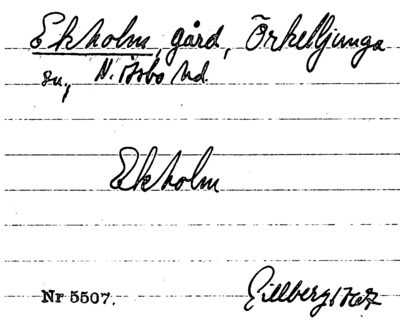 Ekholm, gård, Örkelljunga
sn, N. Åsbo hd.
Ekholm
Nr 5507. Gillberg 1767